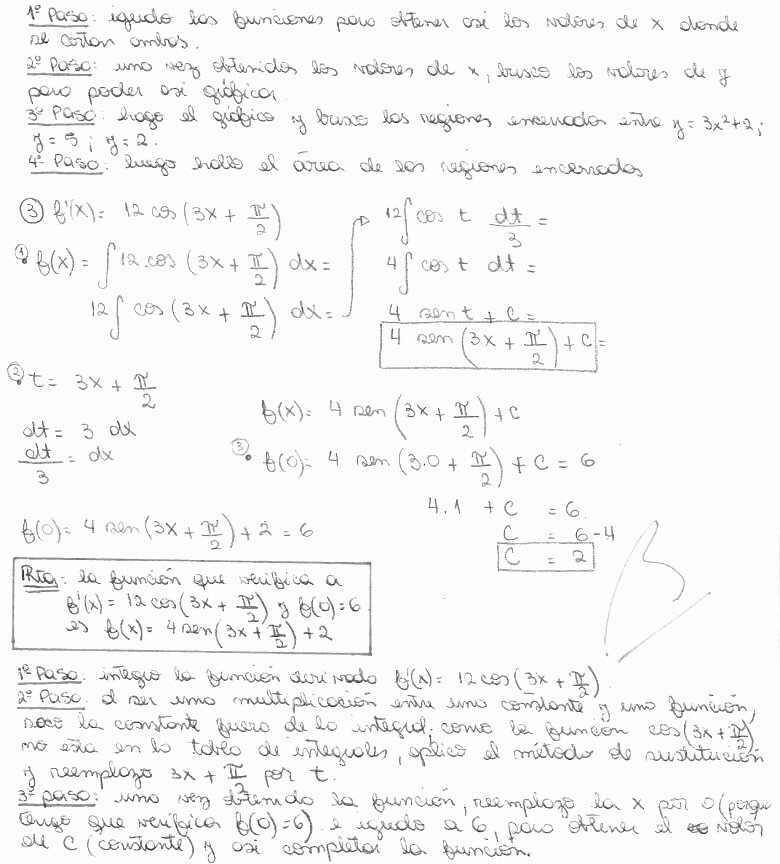 1º Paso: igualo las funciones para obtener así los valores de x donde
se cortan ambas.
2º Paso: una vez obtenidos los valores de x, busco los valores de y
para poder así graficar.
3º Paso: hago el gráfico y busco las regiones encerradas entre y = 3x²+2;
y = 5 ; y = 2.
4º Paso: luego hallo el área de las regiones encerradas
③ f'(x) = 12 cos (3x + π/2)
① f(x) = ∫ 12 cos (3x + π/2) dx =
12 ∫ cos (3x + π/2) dx =
12 ∫ cos t dt/3 =
4 ∫ cos t dt =
4 sen t + C =
4 sen (3x + π/2) + C =
② t = 3x + π/2
dt = 3 dx
dt/3 = dx
f(x) = 4 sen (3x + π/2) + C
③ f(0) = 4 sen (3.0 + π/2) + C = 6
4.1 + C = 6
C = 6-4
C = 2
f(0) = 4 sen (3x + π/2) + 2 = 6
Rta: la función que verifica a
f'(x) = 12 cos (3x + π/2) y f(0) = 6
es f(x) = 4 sen (3x + π/2) + 2
B
1º Paso: integro la función derivada f'(x) = 12 cos (3x + π/2)
2º Paso: al ser una multiplicación entre una constante y una función,
saco la constante fuera de la integral; como la función cos (3x + π/2)
no está en la tabla de integrales, aplico el método de sustitución
y reemplazo 3x + π/2 por t.
3º paso: una vez obtenida la función, reemplazo la x por 0 (porque
tengo que verificar f(0) = 6) e igualo a 6, para obtener el valor
de C (constante) y así completar la función.